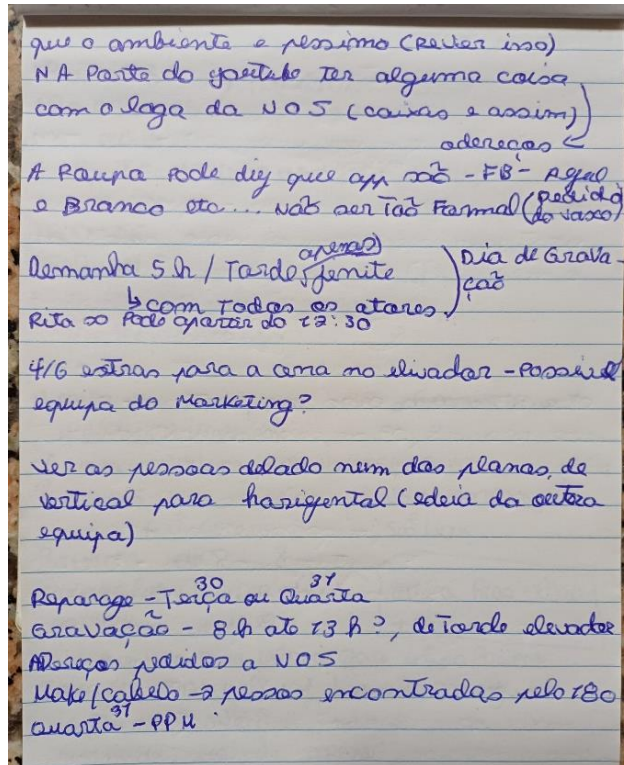 que o ambiente e pessimo (Rever isso)
NA Parte do youtube Ter alguma coisa
com o logo da NOS (caixas e assim)
adereços
A Roupa Pode diz que não - FB - Azul
e Branco etc... Não ser Tão Formal (pedido do vasco)
apenas
Demanha 5 h / Tarde Jenite
Dia de Gravação
com Todos os atores.
Rita so Pode apartir do 12:30
4/6 estras para a cena no elivador - Possivel
equipa do Marketing?
ver as pessoas dolado num dos planos, de
vertical para horigental (edeia da outra
equipa)
30 31
Reparage - Terça ou Quarta
Gravação - 8 h ate 13 h?, de Tarde elevador
ADereços pedidos a NOS
Make/cabelo - 2 pessoas encontradas pelo 180
31
Quarta - PPM